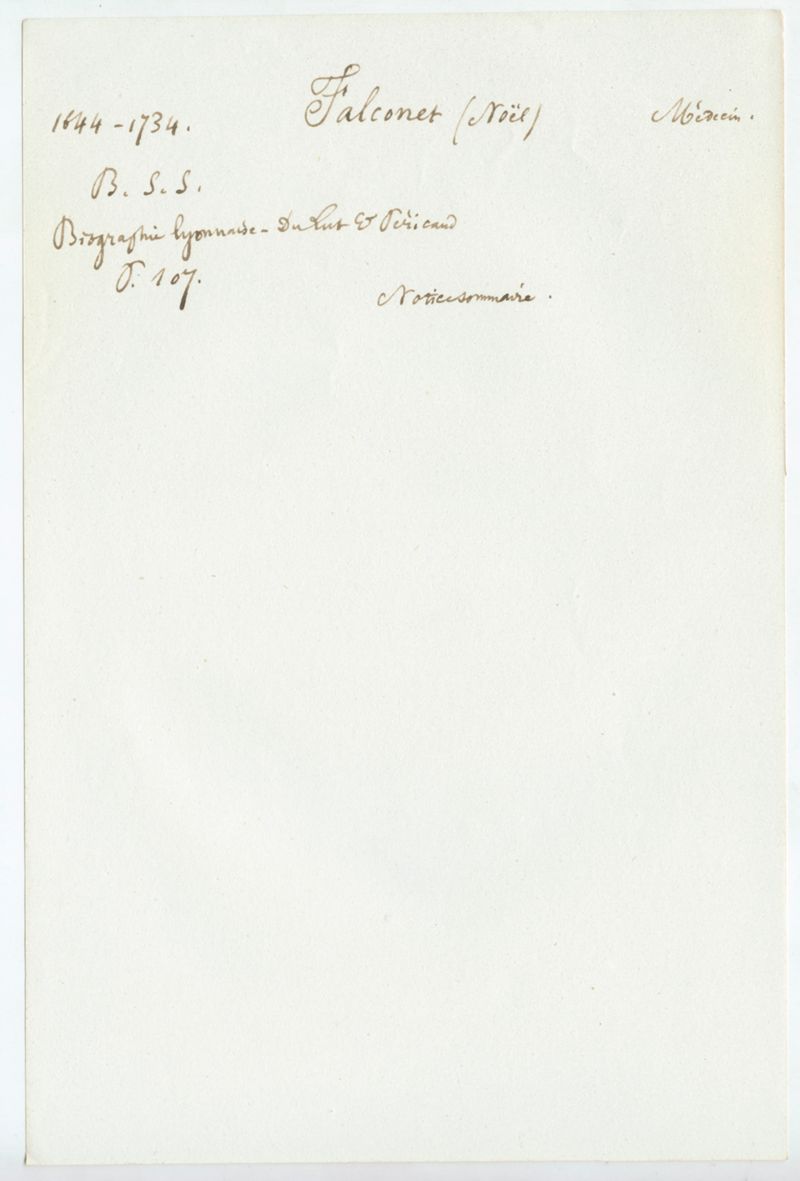 1644-1734. Falconet (Noël) Médecin.
B. S. S.
Biographie lyonnaise - Du Lut & Péricaud
P. 107.
Notice sommaire.